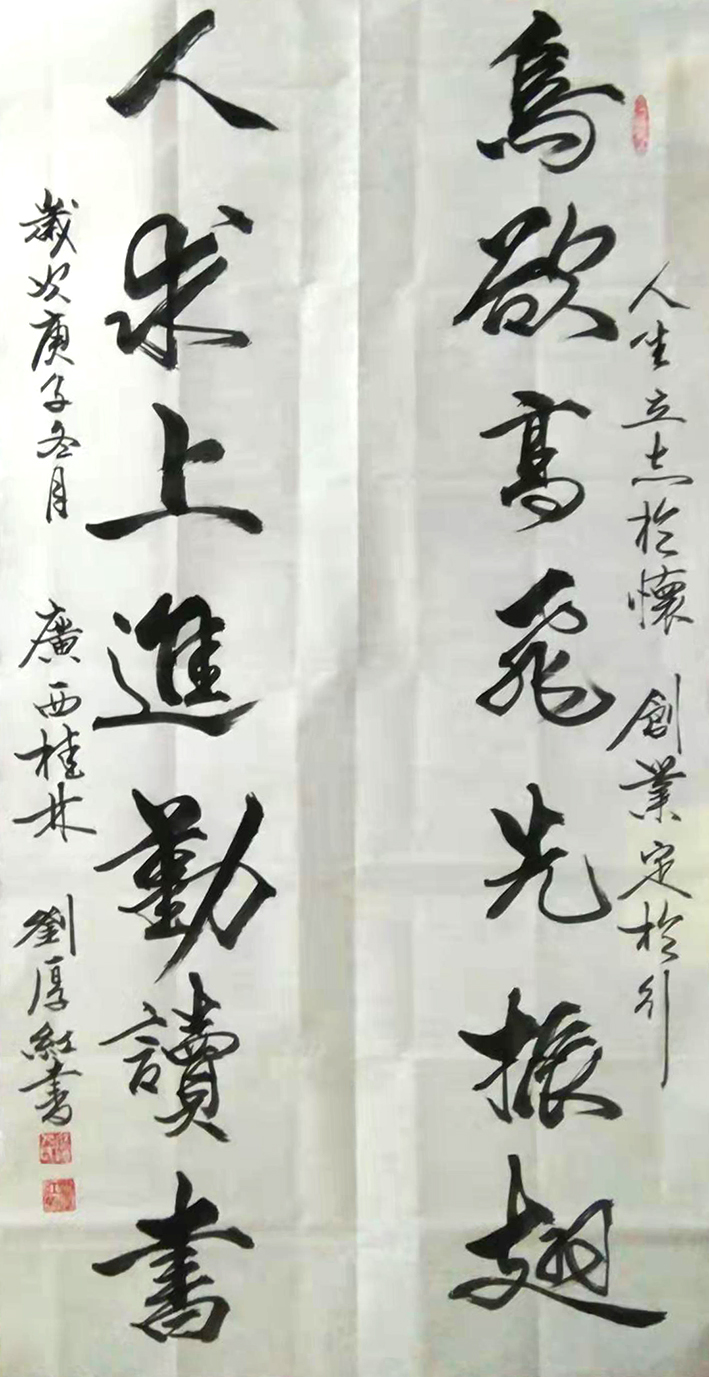 人生立志於懷 創業定於行
鳥欲高飛先振翅
人求上進勤讀書
歲次庚子冬月 廣西桂林 劉厚紅書